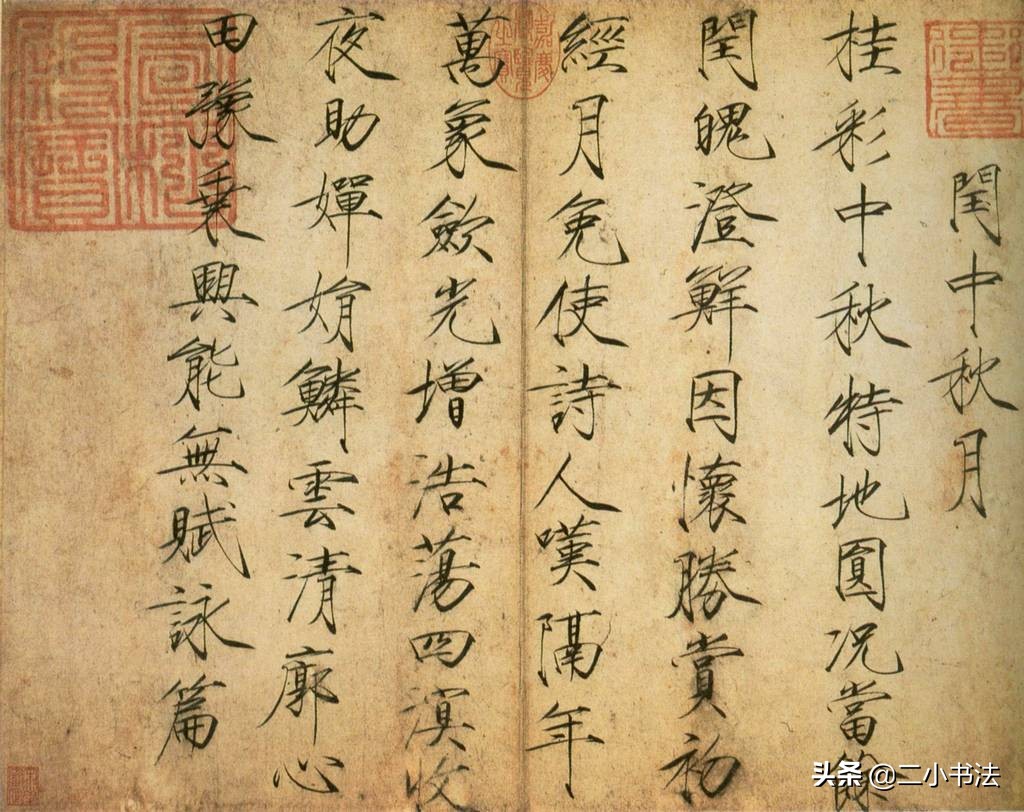 閏中秋月
桂彩中秋特地圓况當餘
閏魄澄鮮因懷勝賞初
經月免使詩人嘆隔年
萬象斂光增浩蕩四溟收
夜助嬋娟鱗雲清廓心
田豫乗興能無賦詠篇
头条 @二小书法